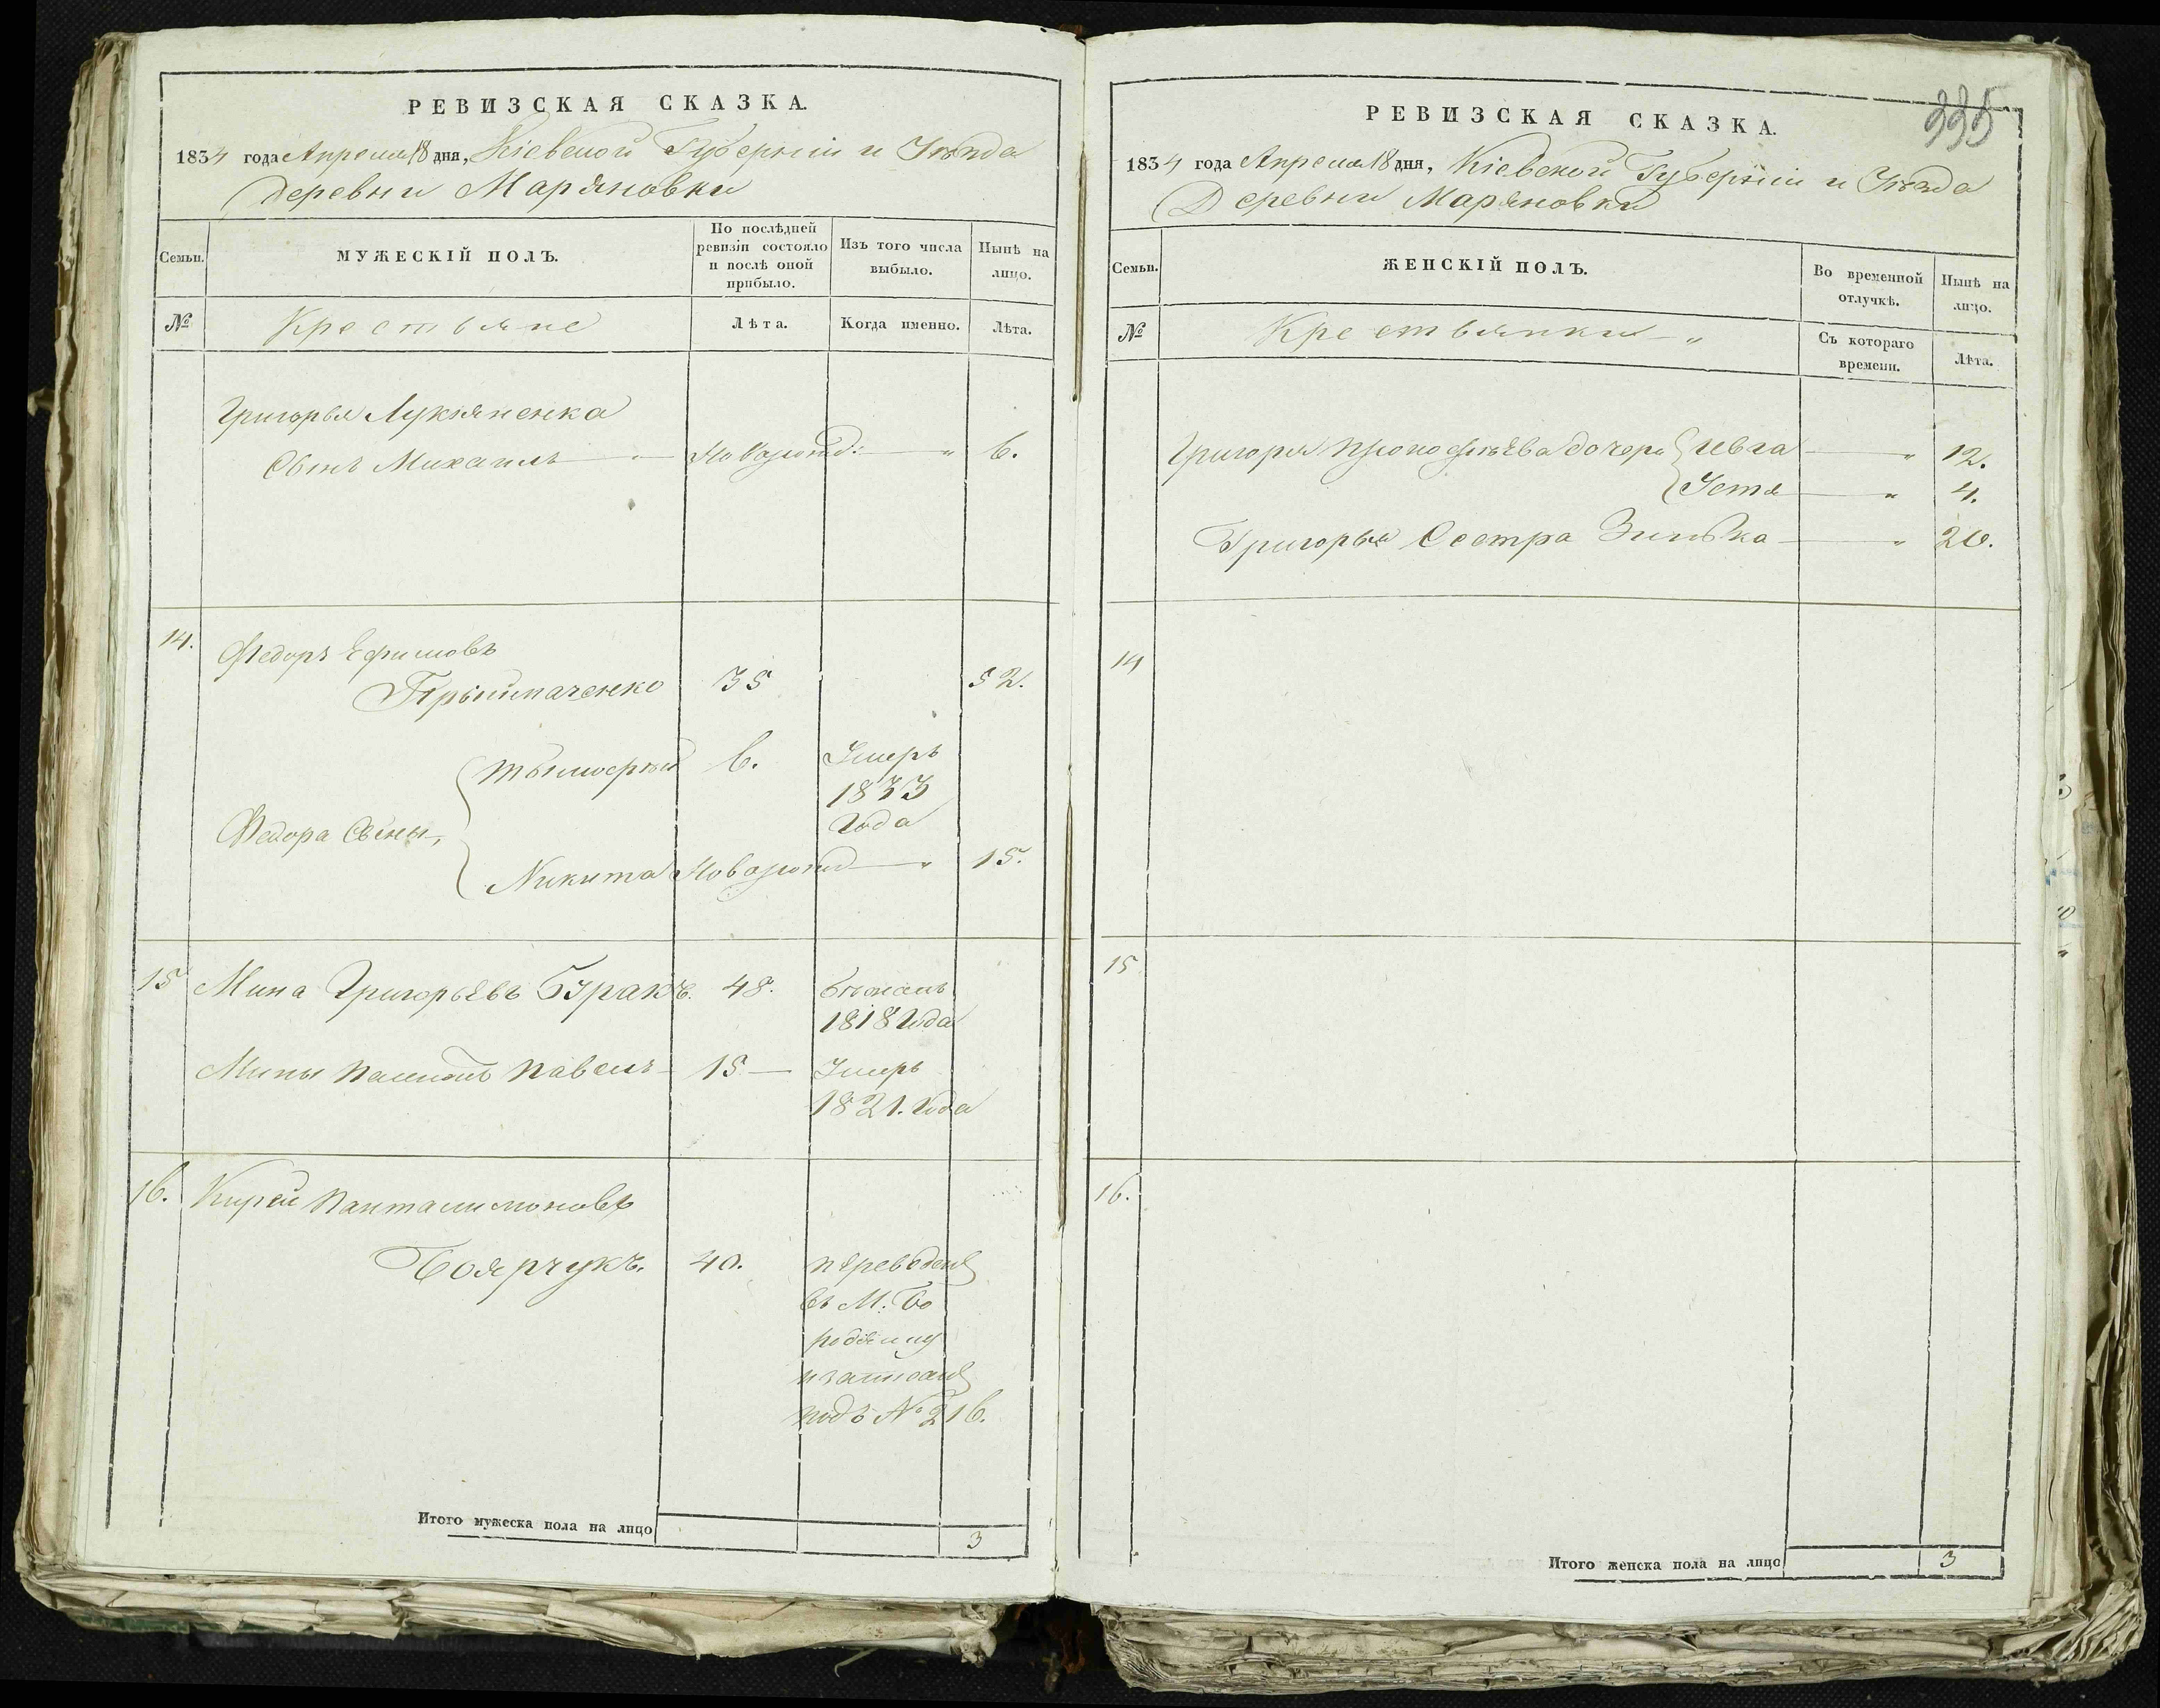 РЕВИЗСКАЯ СКАЗКА.
1834 года Апреля 18 дня, Кіевской Губерніи и Уѣзда
Деревни Марьяновки
Семьи.
МУЖЕСКІЙ ПОЛЪ.
По послѣдней ревизіи состояло и послѣ оной прибыло.
Изъ того числа выбыло.
Нынѣ на лицо.
№
Крестьяне
Лѣта.
Когда именно.
Лѣта.
Григорья Лукяненка
Сынъ Михаилъ — Новорожд: — " 6.
14. Федоръ Ефимовъ
Прыймаченко 35 52.
Тымофей 6. Умеръ
1833
года
Федора Сыны,
Никита Новорожд — " 15.
15 Мина Григорьевъ Буракъ. 48. бѣжалъ
1818 года
Мины Павелъ 15 — Умеръ
1821. года
16. Кирей Панталимоновъ
Боярчукъ. 40. переведенъ
въ М: Бо
родянку
и записанъ
подъ № 216.
Итого мужеска пола на лицо 3
335
РЕВИЗСКАЯ СКАЗКА.
1834 года Апреля 18 дня, Кіевской Губерніи и Уѣзда
Деревни Марьяновки
Семьи.
ЖЕНСКІЙ ПОЛЪ.
Во временной отлучкѣ.
Нынѣ на лицо.
№
Крестьянки — "
Съ котораго времени.
Лѣта.
Григорія Прокофьева дочери Ивга — " 12.
Устя — " 4.
Григорья Сестра Зинька — " 26.
14
15
16.
Итого женска пола на лицо 3